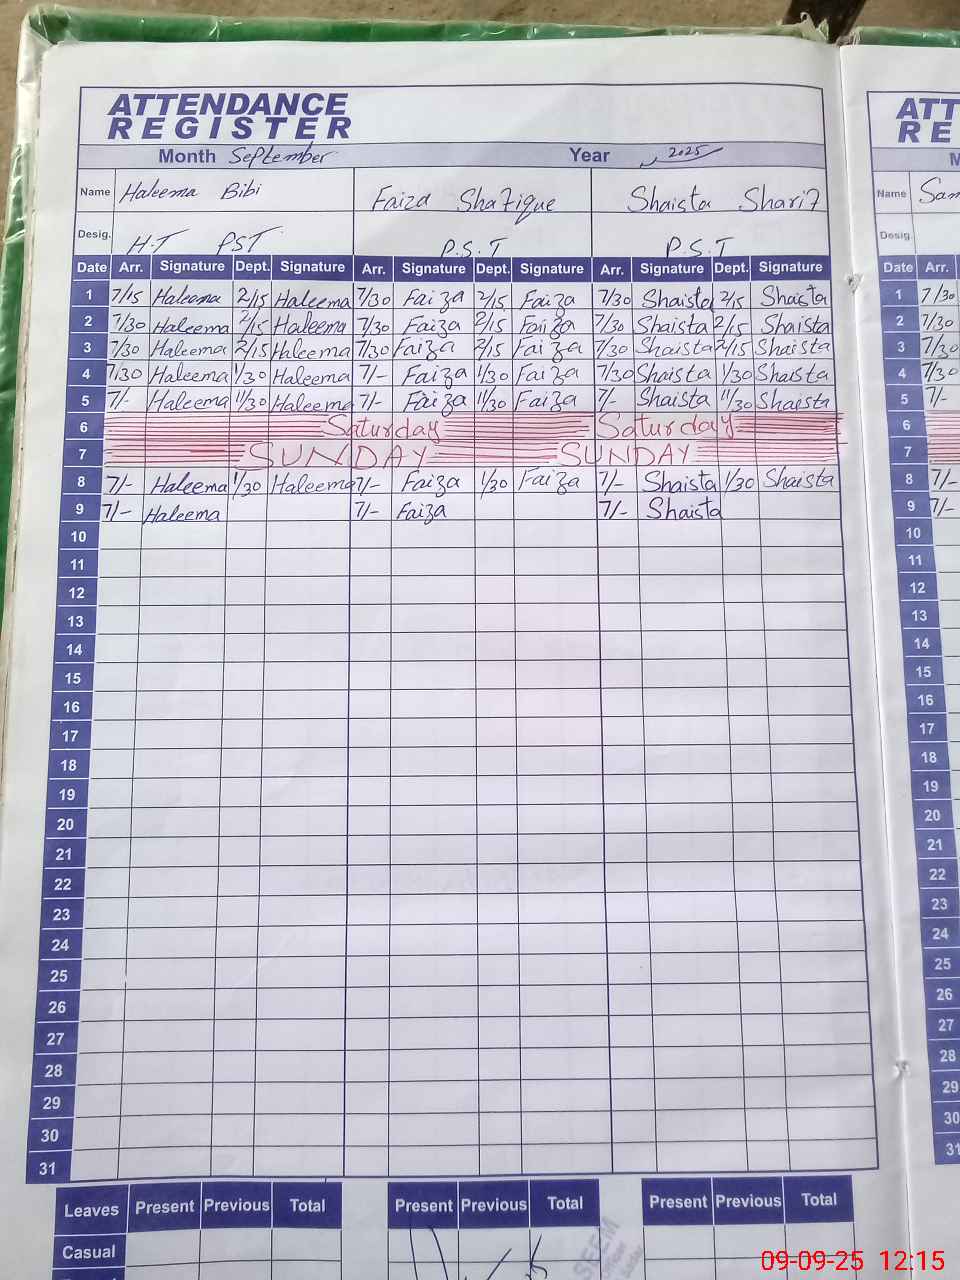 ATTENDANCE
REGISTER
Month September Year 2025
Name Haleema Bibi Faiza Shafique Shaista Sharif
Desig. H.T PST P.S.T P.S.T
Date Arr. Signature Dept. Signature Arr. Signature Dept. Signature Arr. Signature Dept. Signature
1 7/15 Haleema 2/15 Haleema 7/30 Faiza 2/15 Faiza 7/30 Shaista 2/15 Shaista
2 7/30 Haleema 2/15 Haleema 7/30 Faiza 2/15 Faiza 7/30 Shaista 2/15 Shaista
3 7/30 Haleema 2/15 Haleema 7/30 Faiza 2/15 Faiza 7/30 Shaista 2/15 Shaista
4 7/30 Haleema 1/30 Haleema 7/- Faiza 1/30 Faiza 7/30 Shaista 1/30 Shaista
5 7/- Haleema 11/30 Haleema 7/- Faiza 11/30 Faiza 7/- Shaista 11/30 Shaista
6 Saturday Saturday
7 SUNDAY SUNDAY
8 7/- Haleema 1/30 Haleema 7/- Faiza 1/30 Faiza 7/- Shaista 1/30 Shaista
9 7/- Haleema 7/- Faiza 7/- Shaista
10
11
12
13
14
15
16
17
18
19
20
21
22
23
24
25
26
27
28
29
30
31
Leaves Present Previous Total Present Previous Total Present Previous Total
Casual
ATT
RE
M
Name Sam
Desig.
Date Arr.
1 7/30
2 7/30
3 7/30
4 7/30
5 7/-
6
7
8 7/-
9 7/-
10
11
12
13
14
15
16
17
18
19
20
21
22
23
24
25
26
27
28
29
30
31
09-09-25 12:15